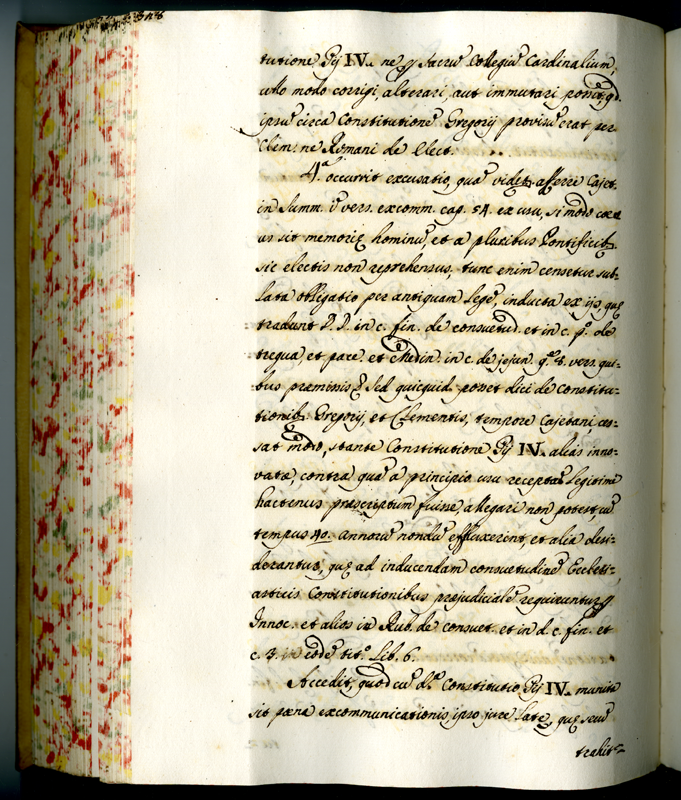 tutione Pij IV. ne p Sacrũ Collegiũ Cardinalium,
ullo modo corrigi, alterari, aut immutari possit, qđ
ipsũ circa Constitutionẽ Gregorij provisũ erat per
Clem. ne Romani de Elect.
4ª. occurrit excusatio, quã videtr afferre Cajet.
in Summ. ĩ vers. excomm. cap. 54. ex usu, si modo
us sit memorię hominũ, et a pluribus Pontificib.
sic electis non reprehensus, tunc enim censetur sub-
lata obligatio per antiquam legẽ, inducta ex ijs, quę
tradunt D.D. in c. fin. de consuetud. et in c. pº. de
tregua, et pace, et Medin. in c. de jejun. qº 8. vers. qui-
bus præmissis. Sed quicquid posset dici de Constitu-
tionib. Gregorij, et Clementis, tempore Cajetani, ces-
sat modo, stante Constitutione Pij IV. alias inno-
vata, contra quã a principio usu receptã legitimè
hactenus præscriptum fuisse, allegari non potest, cũ
tempus 40. annorũ nondũ effluxerint, et alia desi-
derantur, quę ad inducendam consuetudinẽ Ecclesi-
asticis Constitutionibus præjudicialẽ requiruntur p
Innoc. et alios in Rub. de consuet. et in d. c. fin. et
c. 3. eodẽ titº. Lib. 6.
Accedit, quod cũ dª. Constitutio Pij IV. munita
sit pæna excommunicationis ipso jure latę, quę secũ
trahit